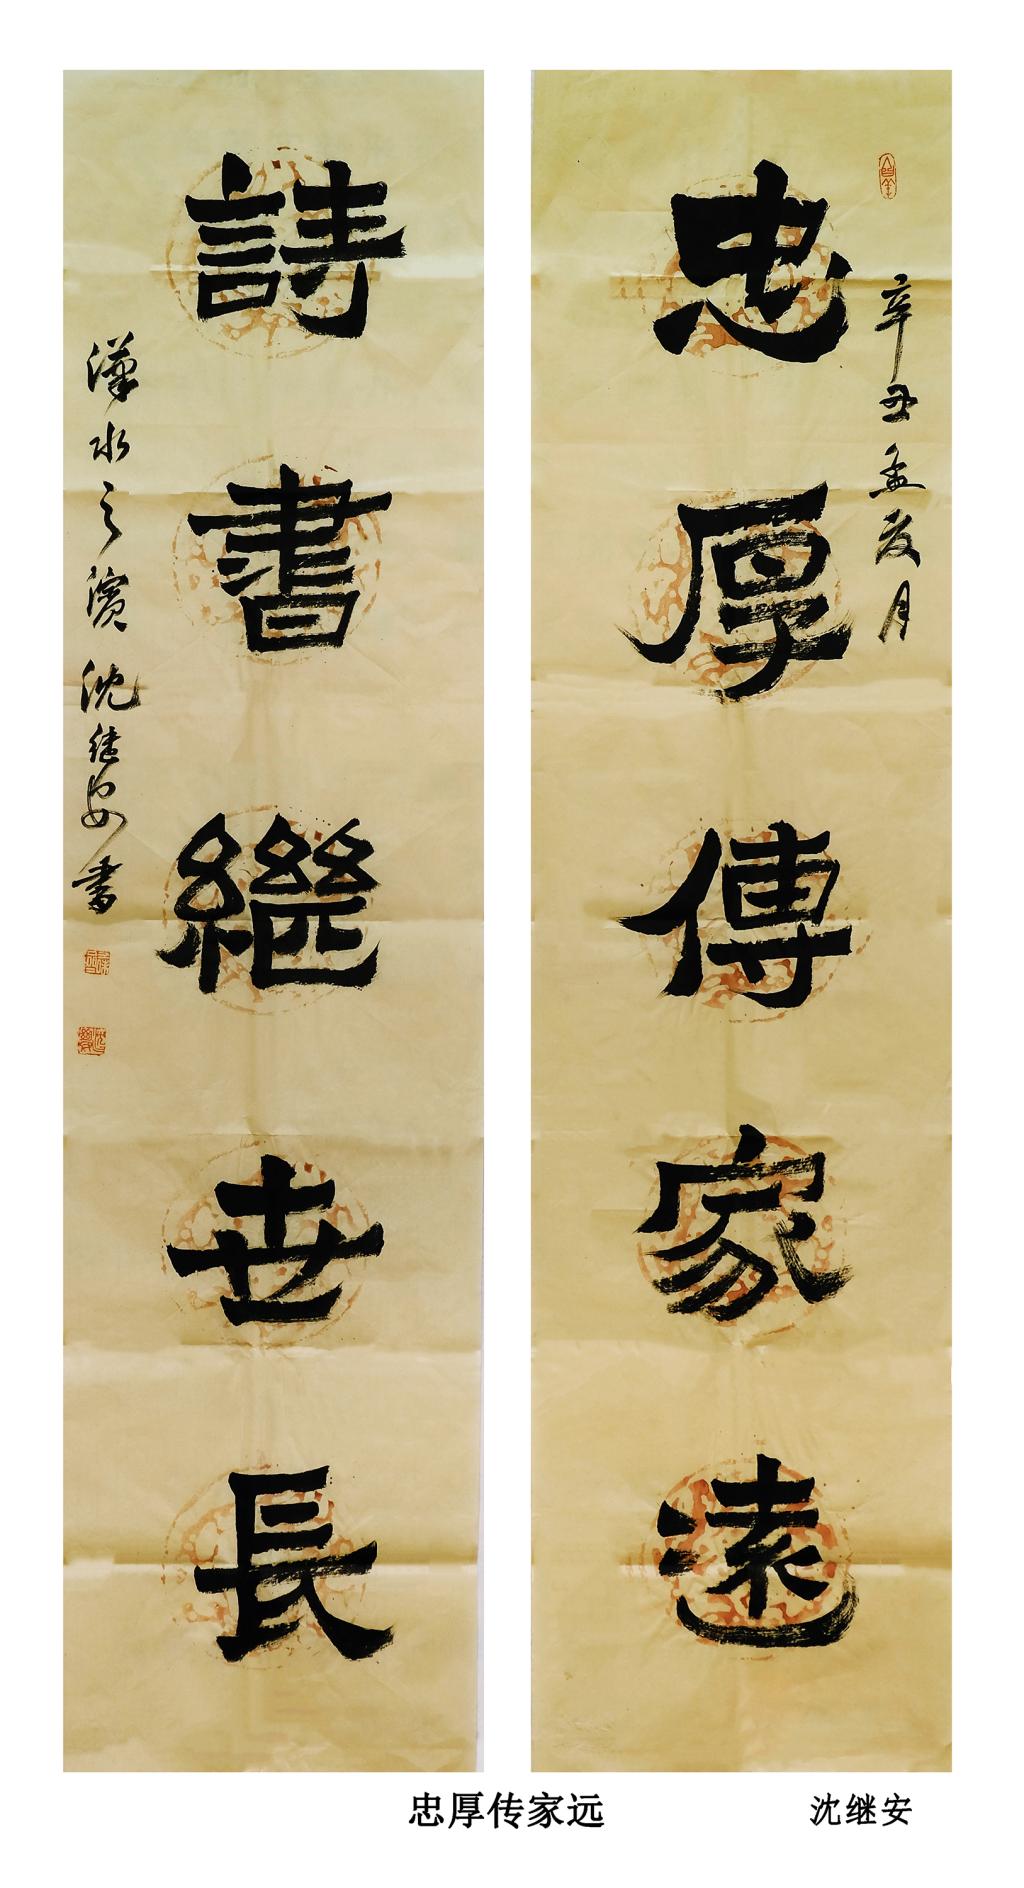 忠厚傳家遠
辛丑孟夏月
詩書繼世長
漢水之濱沈继安書
忠厚传家远
沈继安